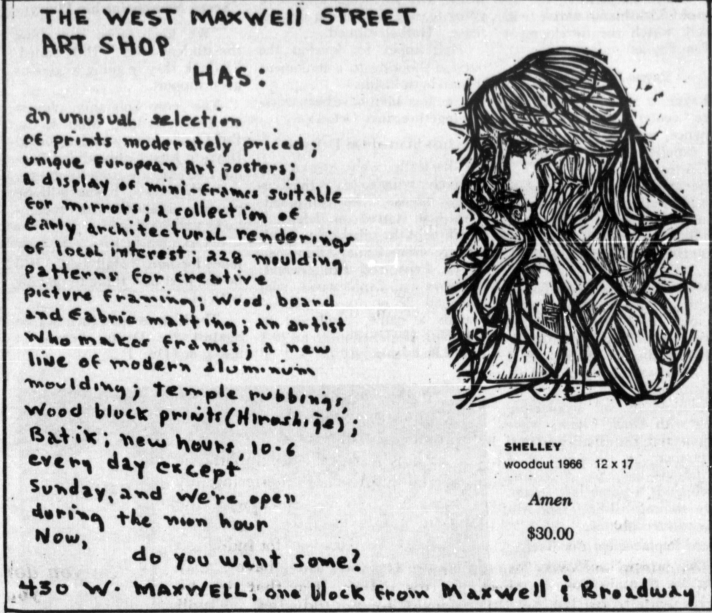 THE WEST MAXWELL STREET
ART SHOP
HAS:
an unusual selection
of prints moderately priced;
unique European Art posters;
a display of mini-frames suitable
for mirrors; a collection of
early architectural renderings
of local interest; 228 moulding
patterns for creative
picture framing; wood, board
and fabric matting; an artist
who makes frames; a new
line of modern aluminum
moulding; temple rubbing;
wood block prints (Hiroshige);
Batik; new hours, 10-6
every day except
Sunday, and we're open
during the noon hour
Now,
do you want some?
430 W. MAXWELL, one block from Maxwell & Broadway
SHELLEY
woodcut 1966 12 x 17
Amen
$30.00